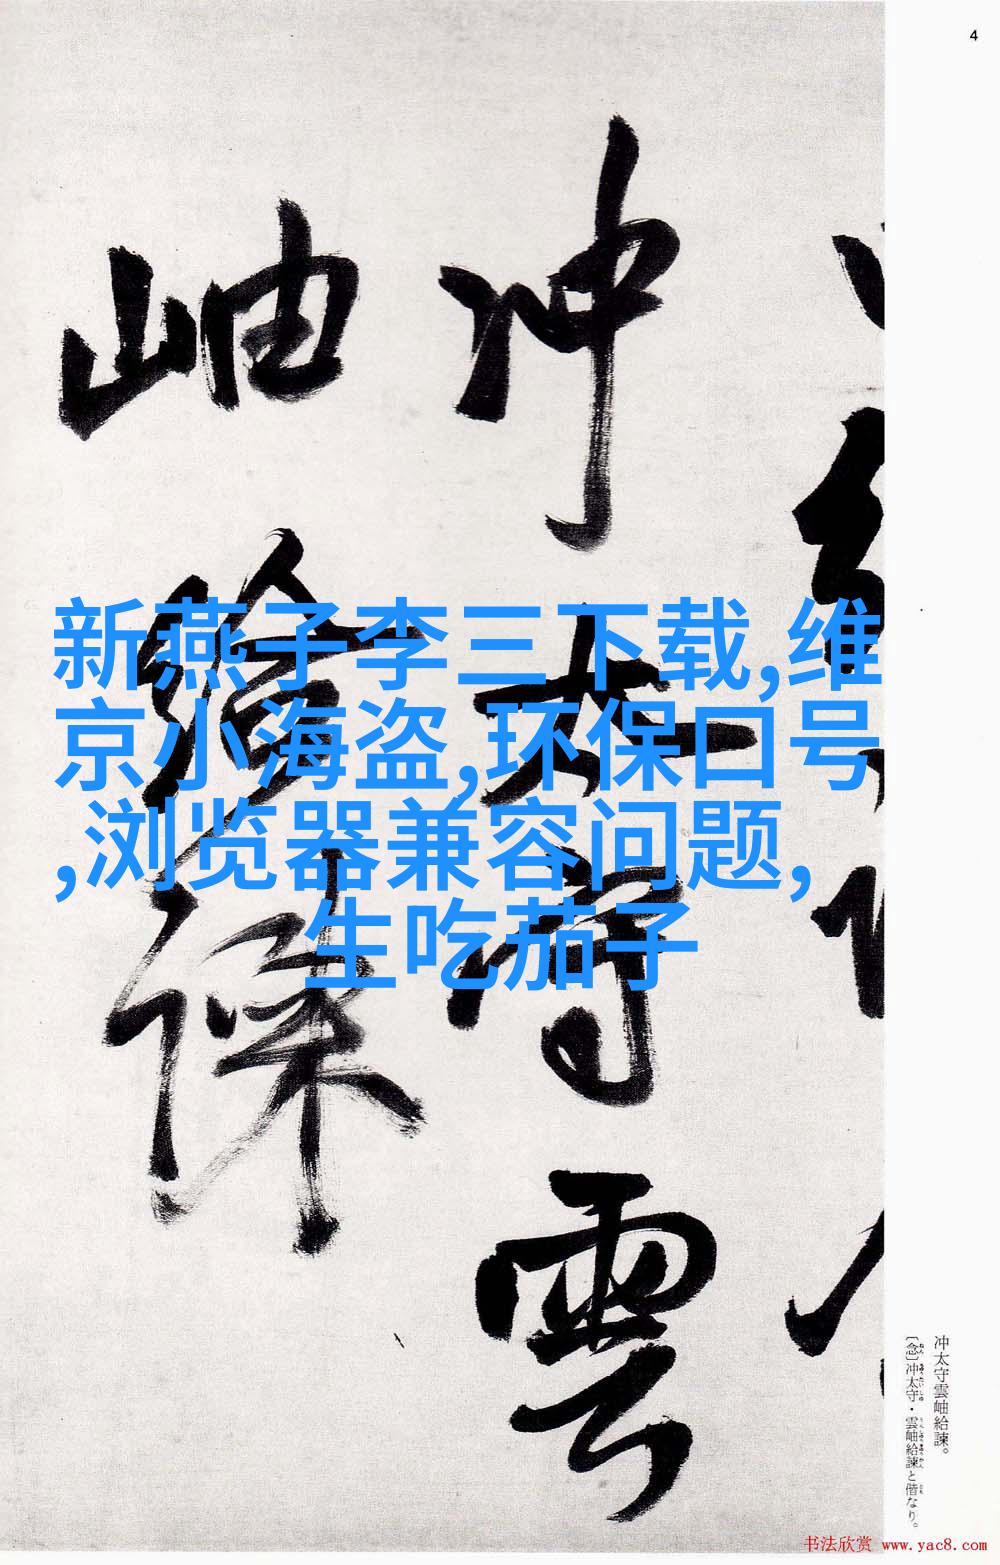 4
冲太守雲
岫給諫
新燕子李三下载,维
京小海盗,环保口号
,浏览器兼容问题,
生吃茄子
冲太守雲岫給諫。
〔念〕冲太守・雲岫給諫と偕なり。
书法欣赏 www.yac8.com